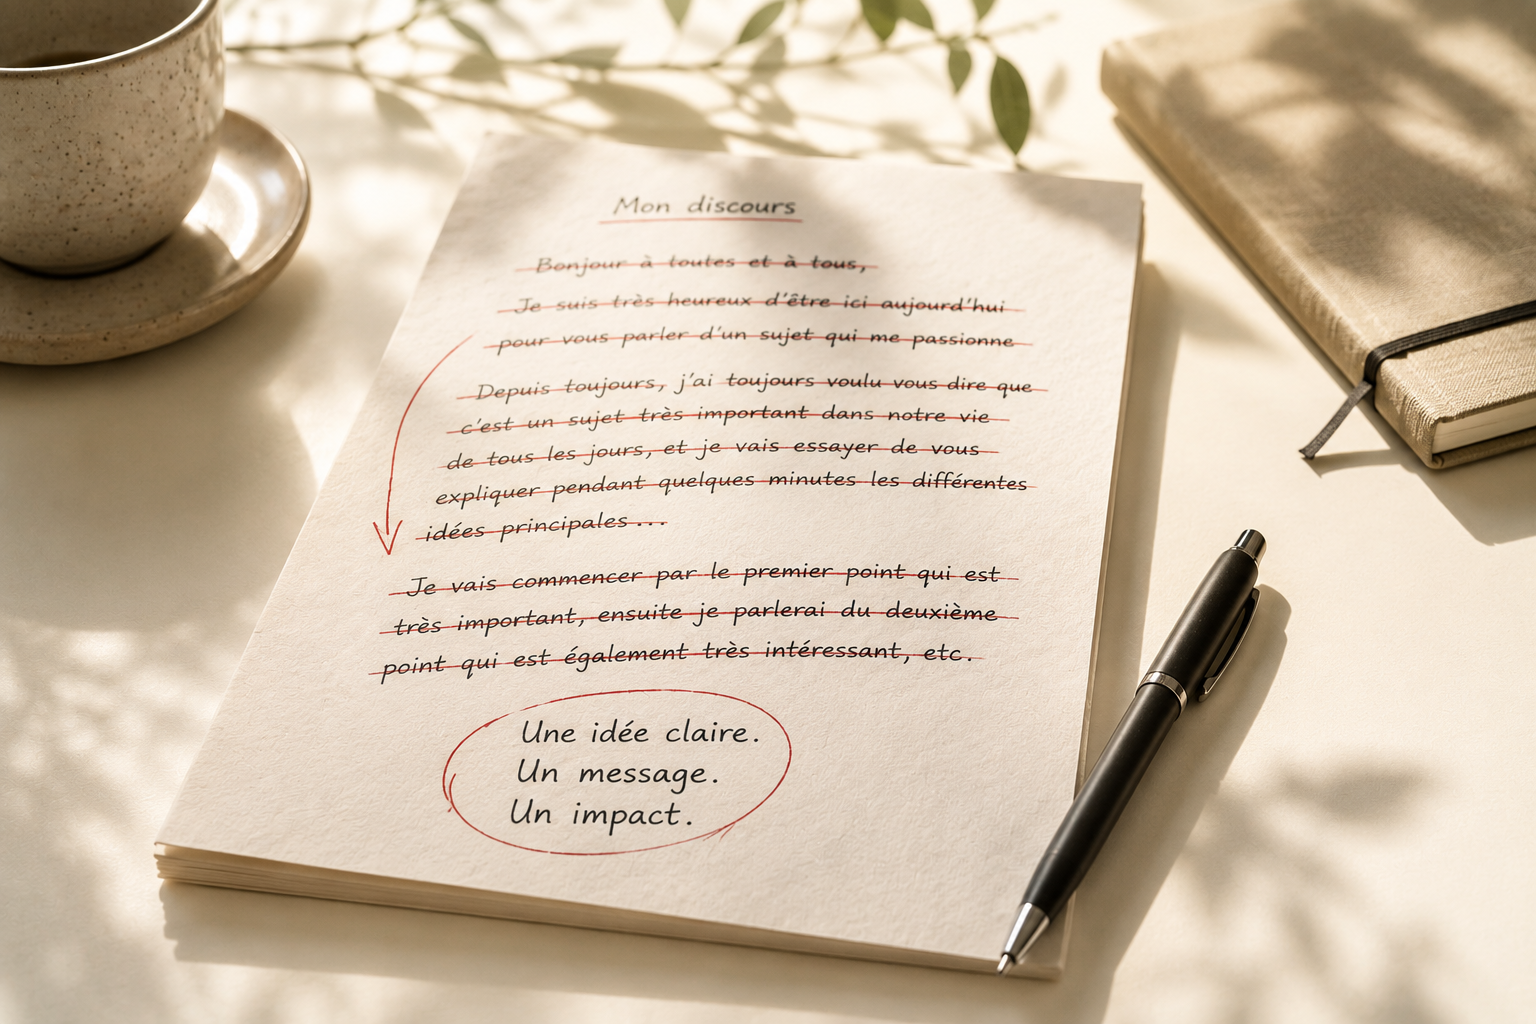 Mon discours
Bonjour à toutes et à tous,
Je suis très heureux d'être ici aujourd'hui
pour vous parler d'un sujet qui me passionne
Depuis toujours, j'ai toujours voulu vous dire que
c'est un sujet très important dans notre vie
de tous les jours, et je vais essayer de vous
expliquer pendant quelques minutes les différentes
idées principales...
Je vais commencer par le premier point qui est
très important, ensuite je parlerai du deuxième
point qui est également très intéressant, etc.
Une idée claire.
Un message.
Un impact.